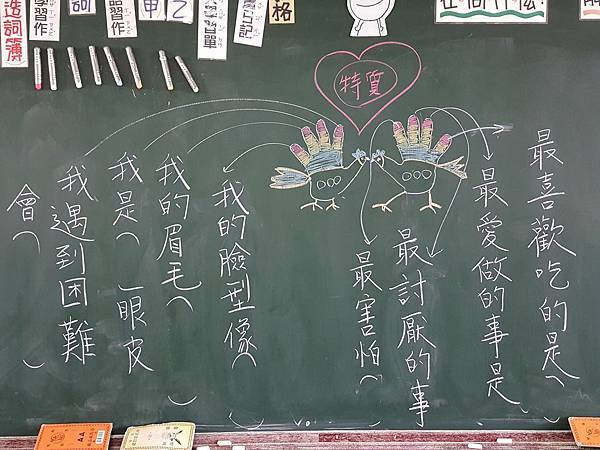 造詞簿
學習作
詞
習作
甲
乙
單
占記
格
特質
○○○
○○○
最喜歡吃的是(
最愛做的事是
最討厭的事
最害怕(
我的臉型像( )
我的眉毛( )
我是( )眼皮
我遇到困難
會( )
AA